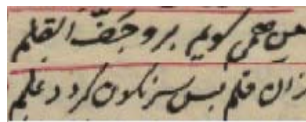 من همی کویم برو جَفَّ القلم
زان قلم بس سرنکون کردد علم